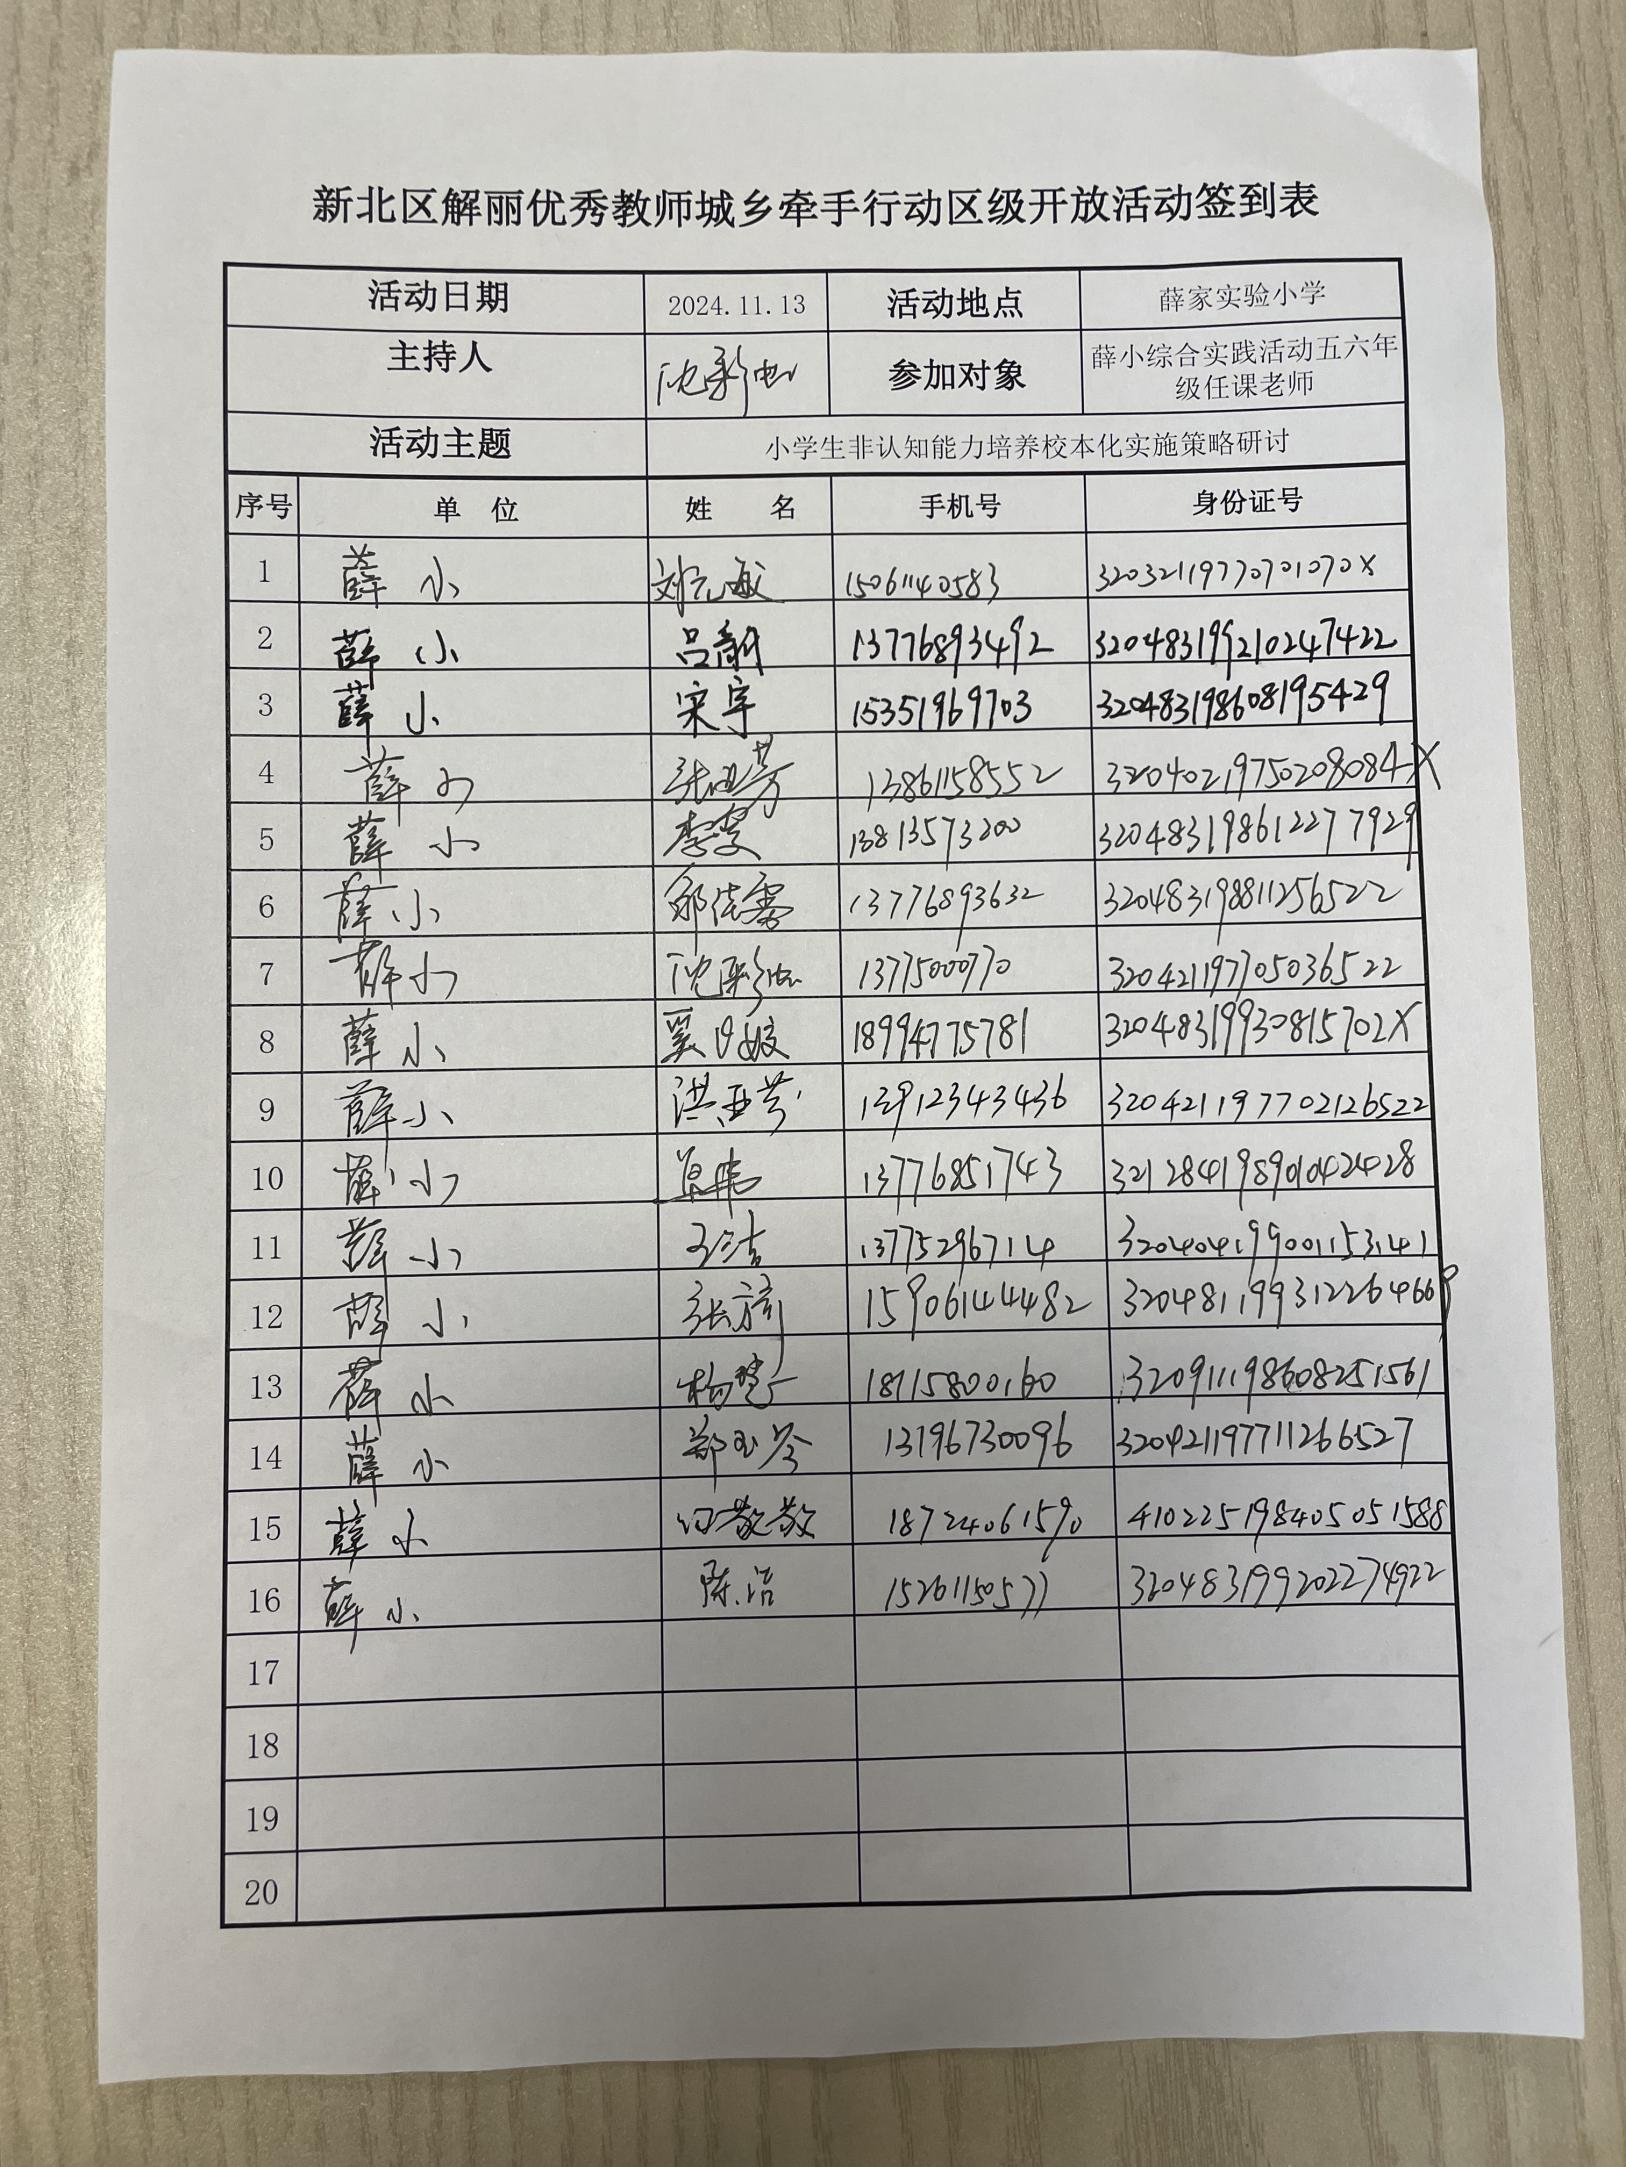 新北区解丽优秀教师城乡牵手行动区级开放活动签到表
活动日期 2024.11.13 活动地点 薛家实验小学
主持人 沈彩虹 参加对象 薛小综合实践活动五六年
级任课老师
活动主题 小学生非认知能力培养校本化实施策略研讨
序号 单 位 姓 名 手机号 身份证号
1 薛小 15061140583 32032119770701070X
2 薛小 13776893492 320483199210247422
3 薛小 宋宇 15351969703 320483198608195429
4 薛小 张亚芳 13861158552 32040219750208084X
5 薛小 李雯 13813573200 320483198612277929
6 薛小 13776893632 320483198811256522
7 薛小 沈彩虹 13775000770 320421197705036522
8 薛小 18994775781 32048319930815702X
9 薛小 洪亚芬 13912343436 320421197702126522
10 薛小 13776851743 321284198901042428
11 薛小 王洁 13775296714 320404199001153141
12 薛小 张旖 15906144482 320481199312264669
13 薛小 杨慧 18115800160 320911198608251561
14 薛小 320421197711266527
15 薛小 18724061590 410225198405051588
16 薛小 陈洁 15261150577 320483199202274922
17
18
19
20